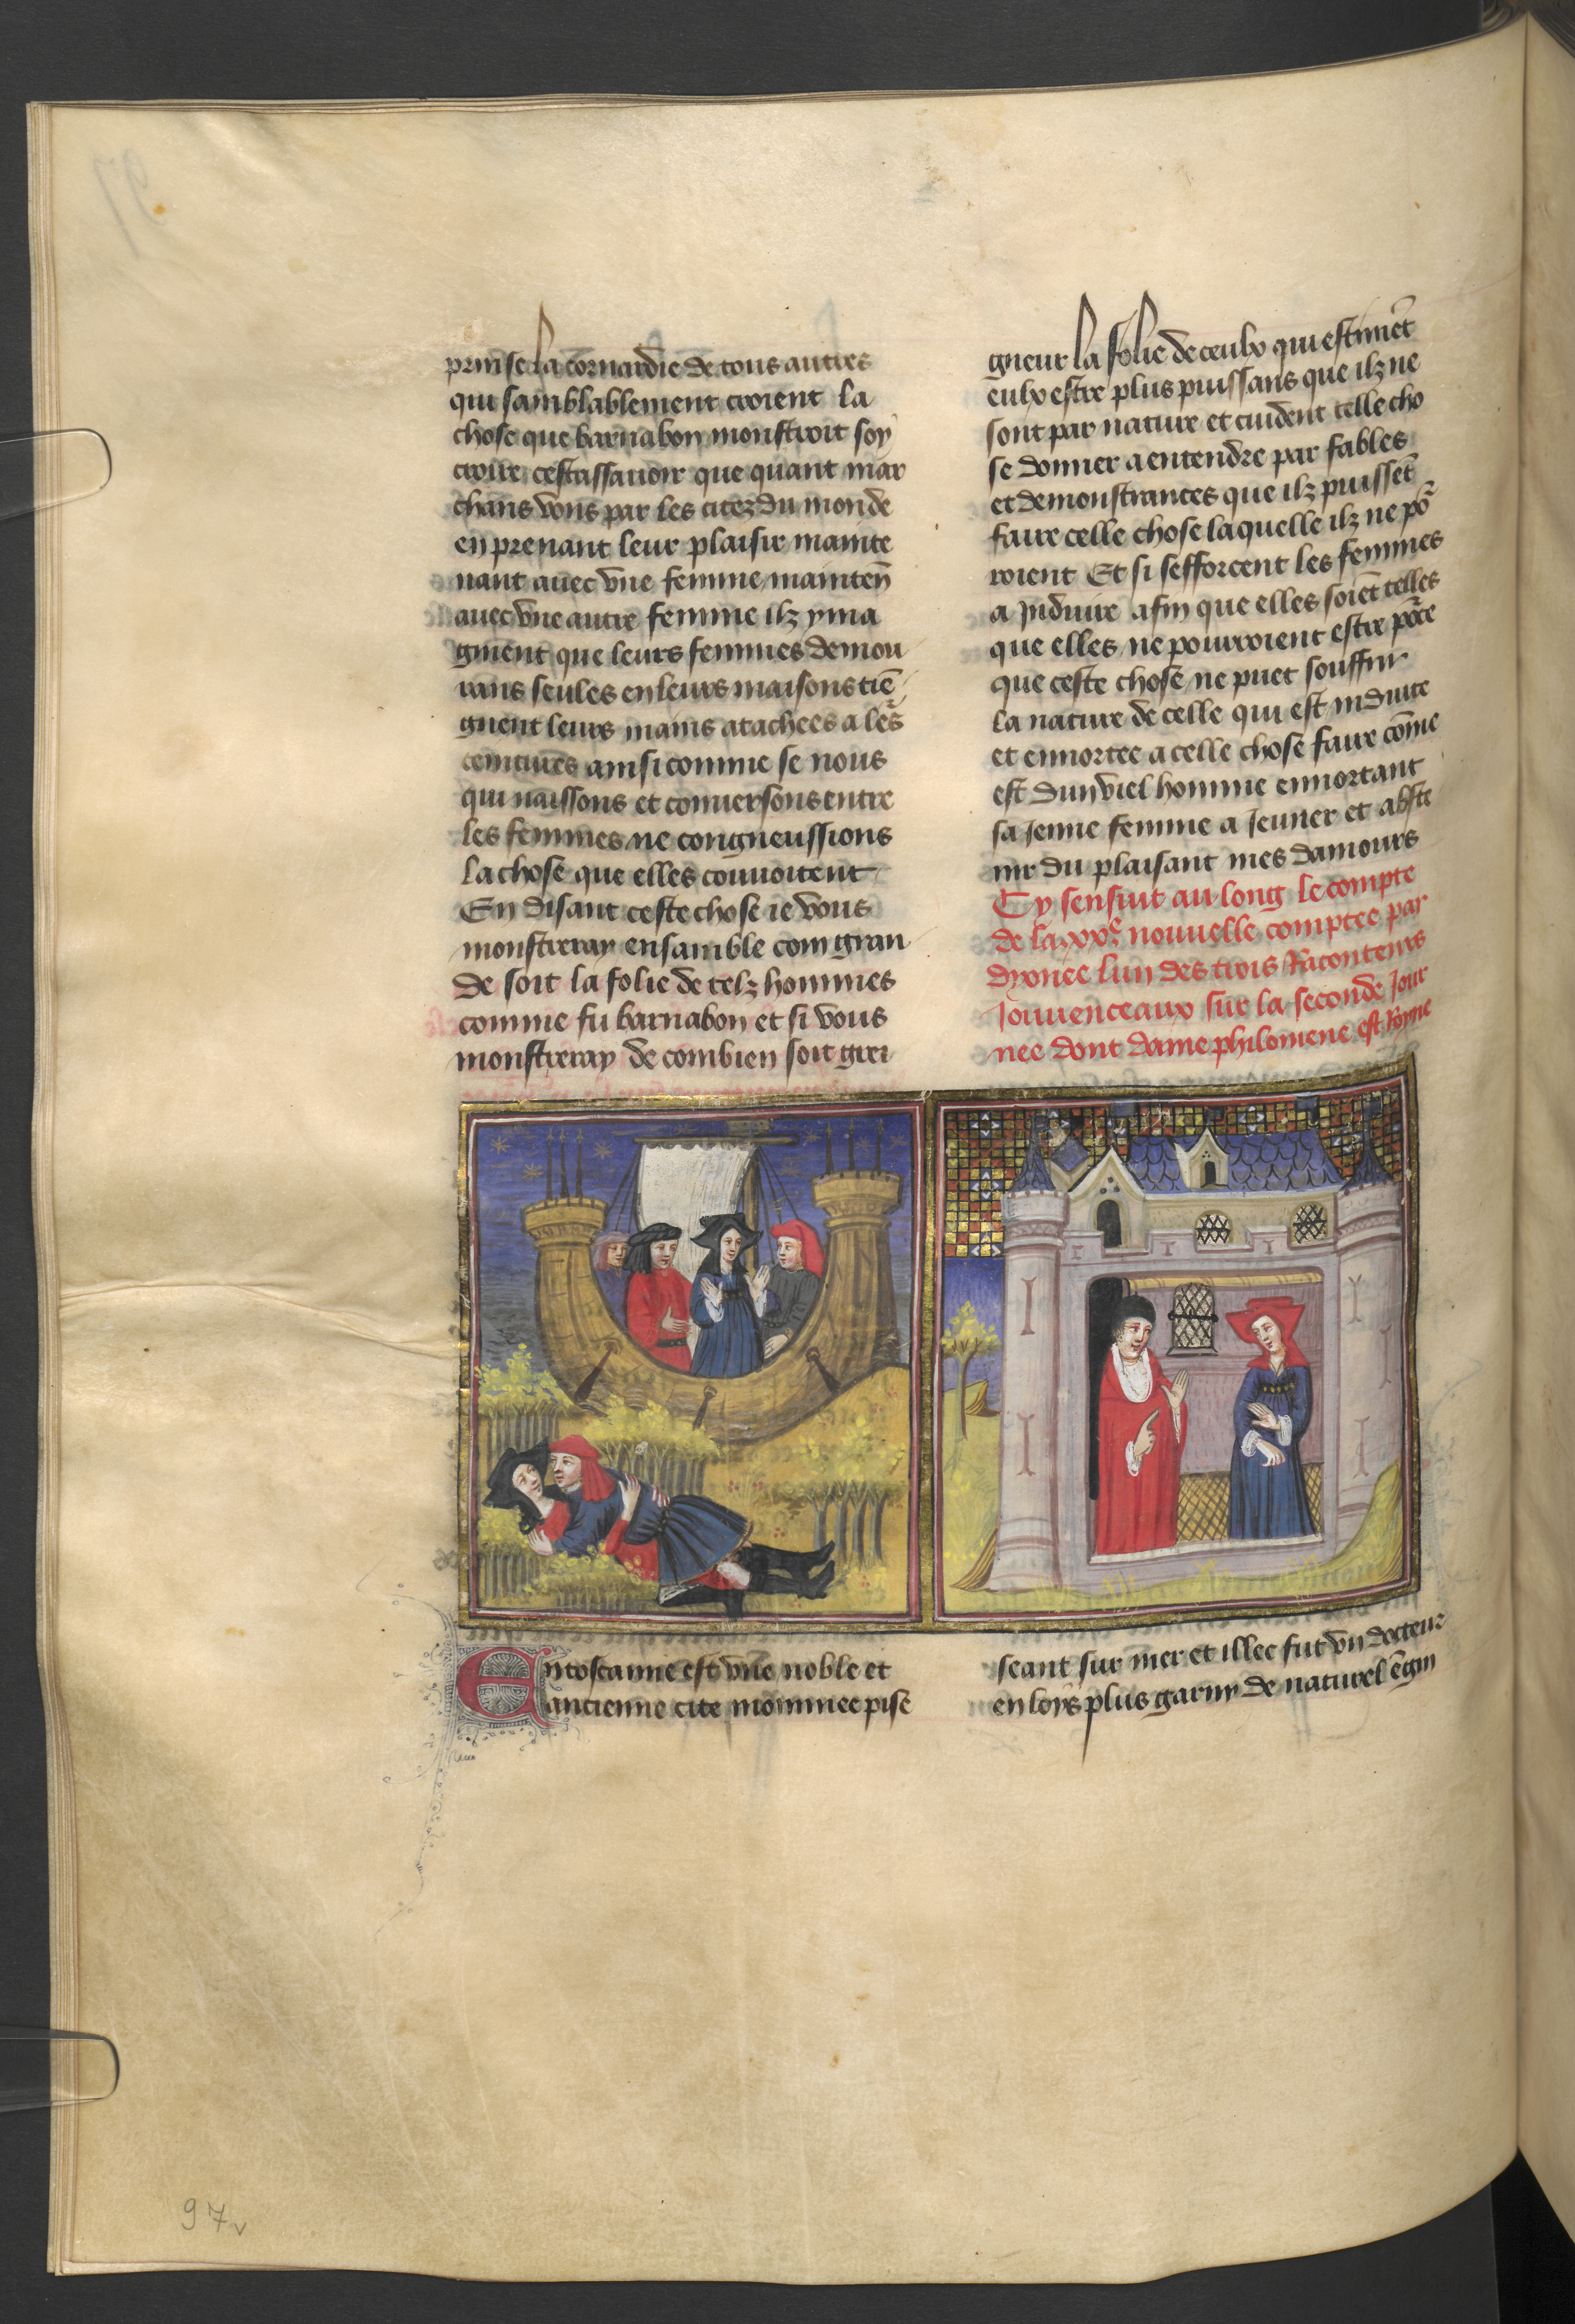 prinse la cornardie de tous autres
qui samblablement croient la
chose que barnabon monstroit soy
croire cestassauoir que quant mar
chans vons par les citez du monde
en prenant leur plaisir mainte
nant auec vne femme mainten̄
auec vne autre femme ilz yma
ginent que leurs femmes demou
rans seules en leurs maisons tiē
gnent leurs mains atachees a le's
ceintures ainsi comme se nous
qui naissons et conuersons entre
les femmes ne congneussions
la chose que elles couuoitent
En disant ceste chose ie vous
monstreray ensamble com gran
de soit la folie de telz hommes
comme fu barnabon et si vous
monstreray de combien soit grei
gneur la folie de ceulx qui estimēt
eulx estre plus puissans que ilz ne
sont par nature et cuident celle cho
se donner a entendre par fables
et demonstrances que ilz puissēt
faire celle chose laquelle ilz ne po'
roient Et si sefforcent les femmes
a Induire afin que elles soiēt telles
que elles ne pourroient estre po'ce
que ceste chose ne puet souffrir
la nature de celle qui est induite
et ennortee a celle chose faire cōme
est dun viel homme ennortant
sa Jenne femme a Jeuner et abste
nir du plaisant mes damours
Cy sensuit au long le compte
de la xxe nouuelle comptee par
dyonee lun des trois Raconteurs
Jouuenceaux sur la seconde Jour
nee dont dame philomene est Royne
En toscanne est vne noble et
ancienne cite nommee pise
seant sur mer et illec fut vn docteur
en loys plus garny de naturel ēgin
97v